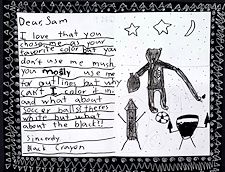 Dear Sam
I love that you
chose me as your
favorite color but you
don't use me much
you mostly use me
for outlines but why
can't I color in
and what about
soccer balls theres
white but what
about the black!!
Sincerely
Black Crayon